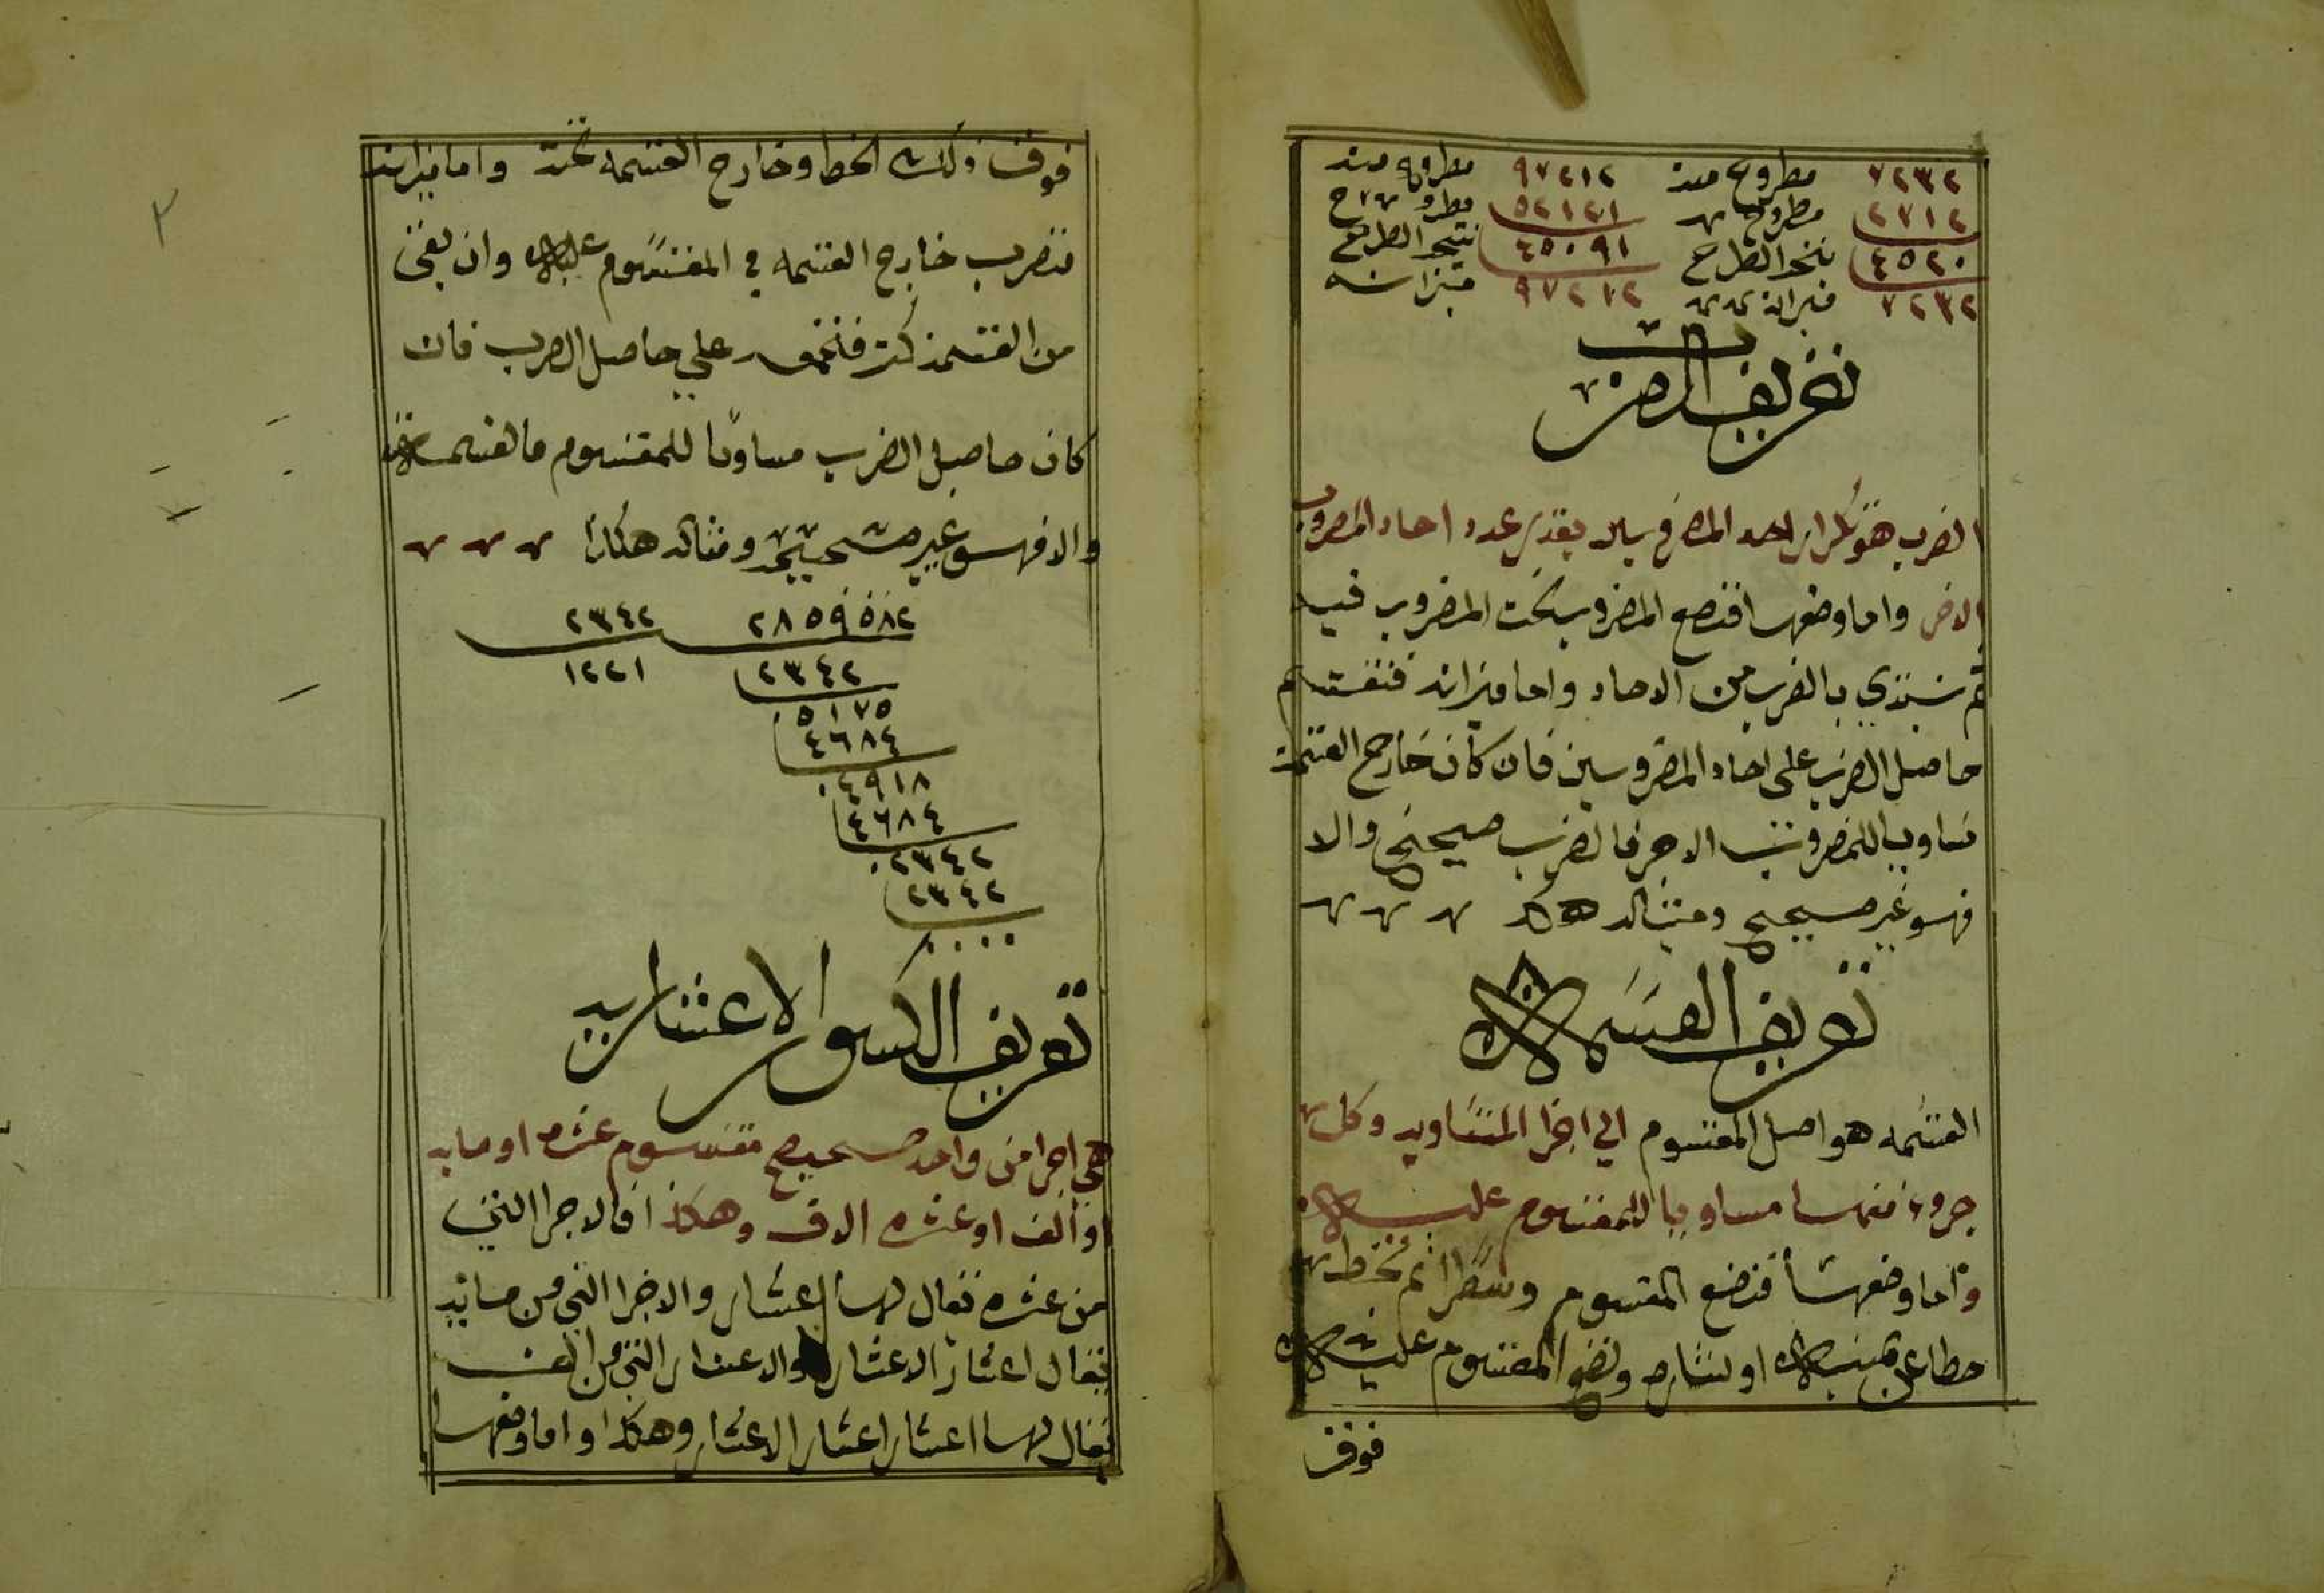 ٧٢٣٢ مطروح منه ٩٧٢١٢ مطروح منه
٢٧١٢ مطروح ٥٢١٢١ مطروح
٤٥٢٠ نتيجة الطرح ٤٥٠٩١ نتيجة الطرح
٧٢٣٢ ميزانه ٩٧٢١٢ ميزانه
تعريف الضرب
الضرب هو تكرار احد المضروبين بقدر عدد احاد المضروب
الاخر واما وضعها فتضع المضروب تحت المضروب فيه
ثم تبتدي بالضرب من الاحاد واما ميزانه فتقسم
حاصل الضرب على احاد المضروبين فان كان خارج القسمة
مساويا للمضروب الاخر فالضرب صحيح والا
فهو غير صحيح ومثاله هكذا
تعريف القسمة
القسمه هو اصل المقسوم الي اجزا المتساويه وكل
جزوء منها مساويا للمقسوم عليه
واما وضعها فتضع المقسوم وسطرا ثم تخط
خطا عن يمينه او يساره وتضع المقسوم عليه
فوق
فوق ذلك الخط وخارج القسمه تحته واما ميزانه
فتضرب خارج القسمه في المقسوم عليه وان بقى
من القسمة كسر فتجمعه علي حاصل الضرب فان
كان حاصل الضرب مساويا للمقسوم فالقسمة
والا فهو غير صحيحه ومثاله هكذا
٢٨٥٩٥٨٢ ٢٣٤٢
٢٣٤٢ ١٢٢١
٥١٧٥
٤٦٨٤
٤٩١٨
٤٦٨٤
٢٣٤٢
٢٣٤٢
٠٠٠٠
تعريف الكسور الاعشاريه
هي اجزا من واحد صحيح مقسوم عشره او مايه
او الف او عشره الاف وهكذا فالاجزا التي
من عشره تقال لها اعشار والاجزا التي من مايه
تقال اعشار الاعشار والاعشار التي من الف
تقال لها اعشار اعشار الاعشار وهكذا واما وضعها
٢